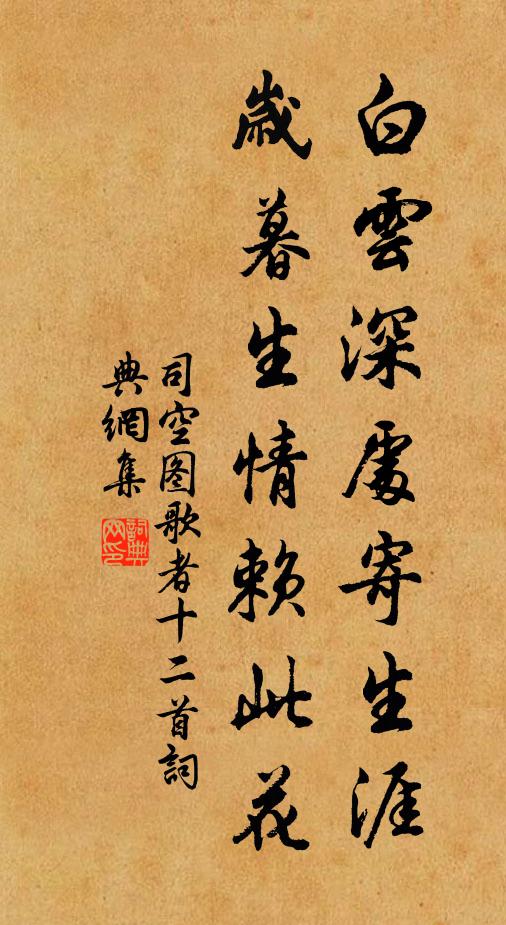 白雲深處寄生涯
歲暮生情賴此花
司空图歌者十二首詞
典網集
詞典網印